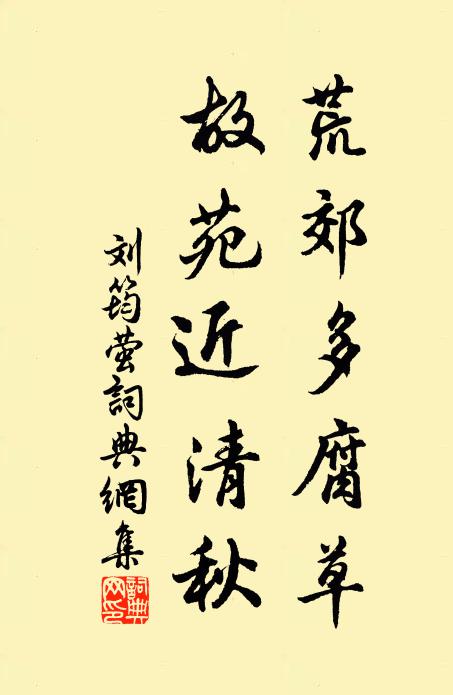 荒郊多腐草
故苑近清秋
刘筠萤詞典網集
詞典網印